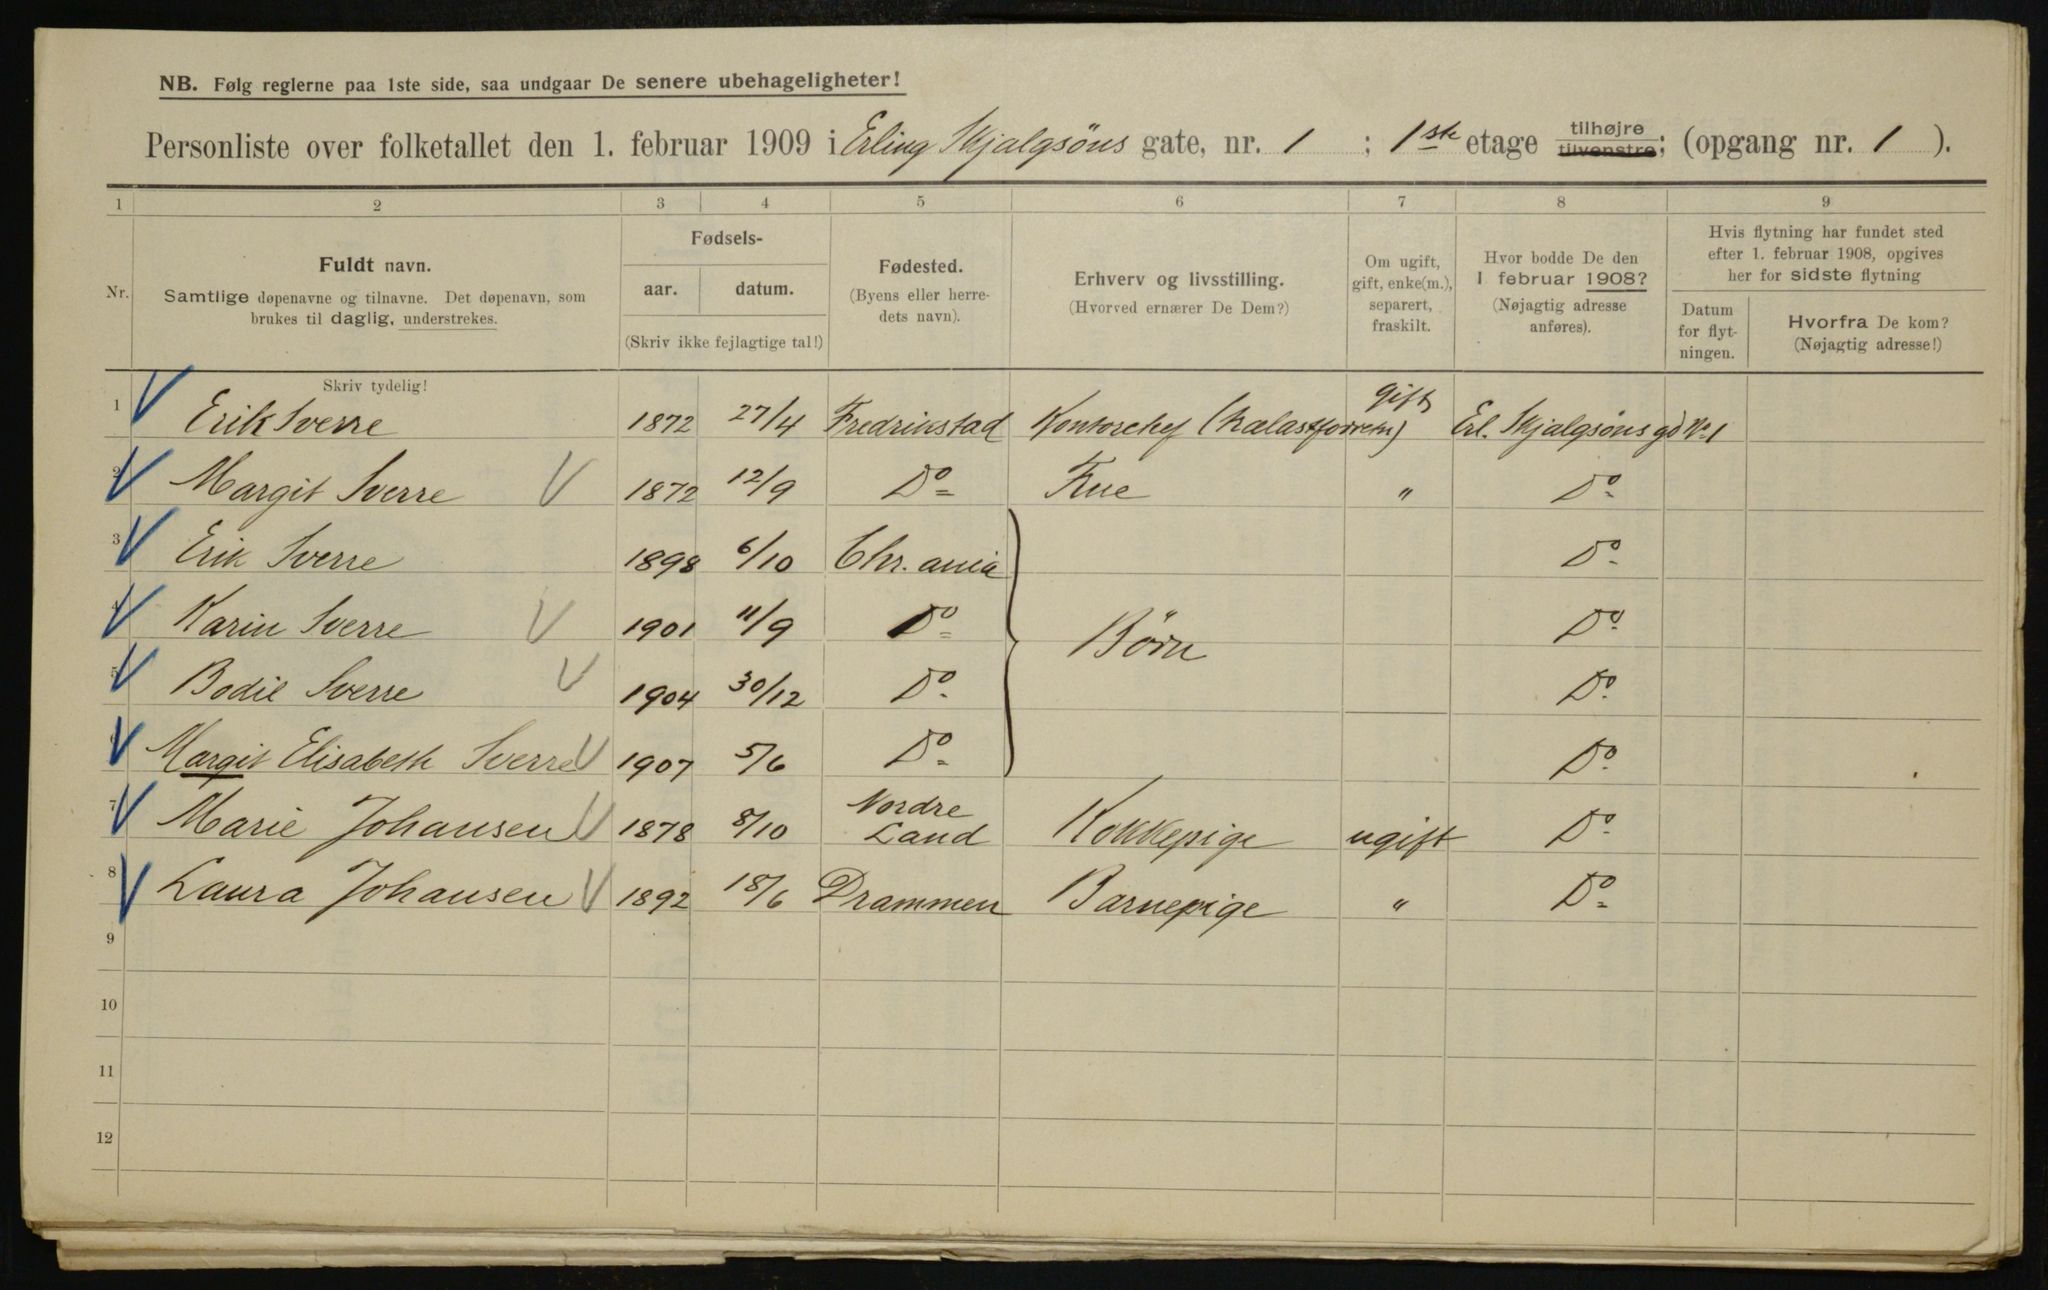 NB. Følg reglerne paa 1ste side, saa undgaar De senere ubehageligheter!
Personliste over folketallet den 1. februar 1909 i Erling Skjalgsöns gate, nr. 1 ; 1ste etage tilhøjre tilvenstre; (opgang nr. 1 ).
1 2 3 4 5 6 7 8 9
Nr.
Fuldt navn.
Samtlige døpenavne og tilnavne. Det døpenavn, som
brukes til daglig, understrekes.
Fødsels-
aar. datum.
(Skriv ikke fejlagtige tal!)
Fødested.
(Byens eller herre-
dets navn).
Erhverv og livsstilling.
(Hvorved ernærer De Dem?)
Om ugift,
gift, enke(m.),
separert,
fraskilt.
Hvor bodde De den
1 februar 1908?
(Nøjagtig adresse
anføres).
Hvis flytning har fundet sted
efter 1. februar 1908, opgives
her for sidste flytning
Datum
for flyt-
ningen.
Hvorfra De kom?
(Nøjagtig adresse!)
Skriv tydelig!
1 Erik Sverre 1872 27/4 Fredrikstad Kontorchef gift Erl. Skjalgsöns gd No 1
2 Margit Sverre 1872 12/9 Do Frue " Do
3 Erik Sverre 1898 6/10 Chr.ania Do
4 Karin Sverre 1901 11/9 Do Börn Do
5 Bodil Sverre 1904 30/12 Do Do
6 Margit Elisabeth Sverre 1907 5/6 Do Do
7 Marie Johansen 1878 8/10 Nordre Land Kokkepige ugift Do
8 Laura Johansen 1892 18/6 Drammen Barnepige " Do
9
10
11
12